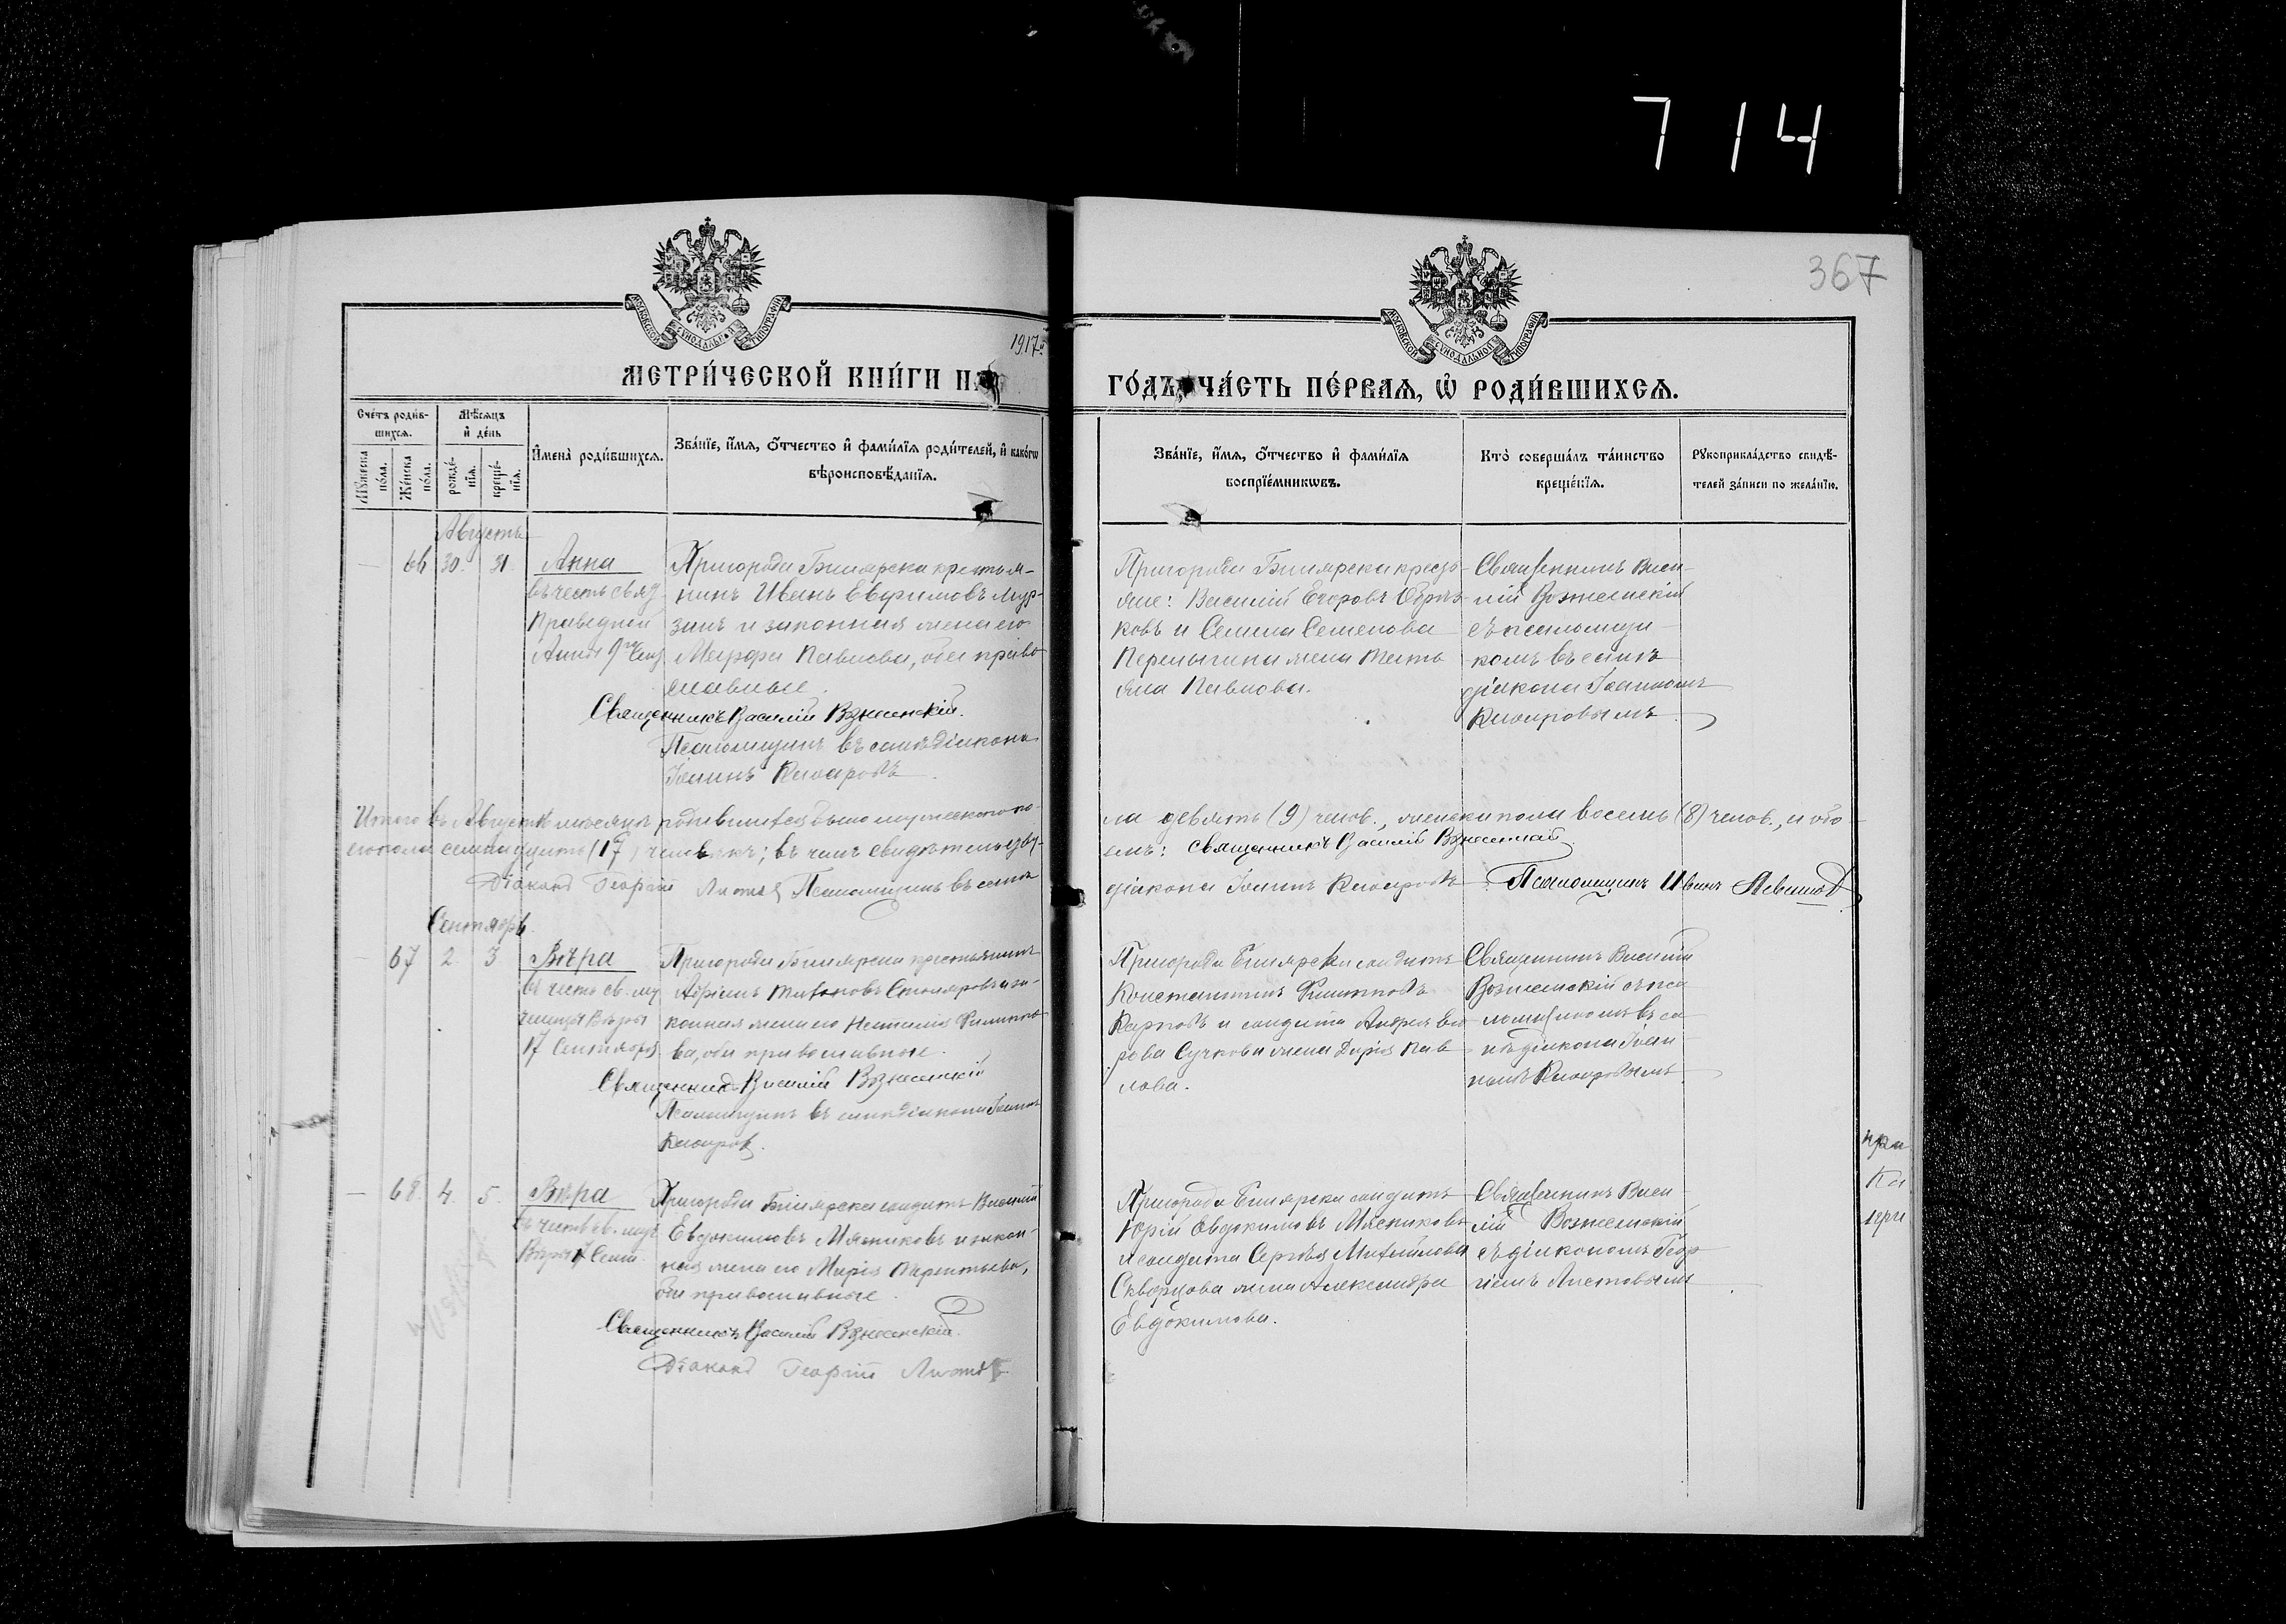 714
367
МОСКОВСКОЙ СѴНОДАЛЬНОЙ ТИПОГРАФІИ
МОСКОВСКОЙ СѴНОДАЛЬНОЙ ТИПОГРАФІИ
1917
МЕТРИ́ЧЕСКОЙ КНИ́ГИ НА
ГО́ДЪ, ЧА́СТЬ ПЕ́РВАѦ, Ѡ РОДИ́ВШИХСѦ.
Сче́тъ роди́в-
шихсѧ.
Мѣ́сѧцъ
и де́нь
Мꙋ́жеска
по́ла.
Же́нска
по́ла.
рожде́-
нїѧ.
креще́-
нїѧ.
И҆мена̀ роди́вшихсѧ.
Зва́нїе, и҆́мѧ, ѻ҆́тчество и҆ фами́лїѧ роди́телей, и҆ како́гѡ
вѣроисповѣ́данїѧ.
Зва́нїе, и҆́мѧ, ѻ҆́тчество и҆ фами́лїѧ
воспрїе́мникѡвъ.
Кто̀ соверша́лъ та́инство
креще́нїѧ.
Рꙋкоприкла́дство свидѣ́-
телей за́писи по жела́нїю.
Августъ
66 30. 31.
Анна
въ честь свят
Праведной
Анны 9го Сент
Пригорода Билярска крестья-
нинъ Иванъ Евфимовъ Мур-
зинъ и законная жена его
Марфа Павлова, оба право
славные.
Священникъ Василій Вознесенскій.
Псаломщикъ въ санѣ діакона
Іоаннъ
Пригорода Билярска кресть-
яне: Василій Егоровъ
ковъ и Семена Семенова
жена Татья
яна Павлова.
Священникъ Васи-
лій Вознесенскій
съ псаломщи-
комъ въ санѣ
діакона Іоанномъ
Итого въ Августѣ мѣсяцѣ родившихся было мужескаго по-
ла девять (9) челов., женска пола восемь (8) челов., и обо-
его пола семнадцать (17) человѣкъ; въ чемъ свидѣтельству-
емъ: Священникъ Василій Вознесенскій
Діаконъ Георгій Листовъ Псаломщикъ въ санѣ
діакона Іоаннъ
Псаломщикъ Иванъ
Сентябрь.
67 2 3
Вѣра
въ честь св. му
ченицы Вѣры
17 Сентября
Пригорода Билярска крестьянинъ
Столяровъ и за-
конная жена его Наталія Филиппо
ва, оба православные.
Священникъ Василій Вознесенскій
Псаломщикъ въ санѣ діакона Іоаннъ
Пригорода Билярска солдатъ
Константинъ Филипповъ
Карповъ и солдата Андрея Его
рова Сучкова жена Дарія Пав
лова.
Священникъ Василій
Вознесенскій съ пса
ломщикомъ въ са
нѣ діакона Іоан
номъ
68. 4. 5.
Вѣра
въ честь св. муч.
Вѣры 17 Сент.
Пригорода Билярска солдатъ Василій
Евдокимовъ Мясниковъ и закон-
ная жена его Марія
оба православные.
Священникъ Василій Вознесенскій.
Діаконъ Георгій Листовъ
Пригорода Билярска солдатъ
Юрій Евдокимовъ Мясниковъ
и солдата Сергѣя Михайлова
Скворцова жена Александра
Евдокимова.
Священникъ Васи-
лій Вознесенскій
съ діакономъ Геор
гіемъ Листовымъ